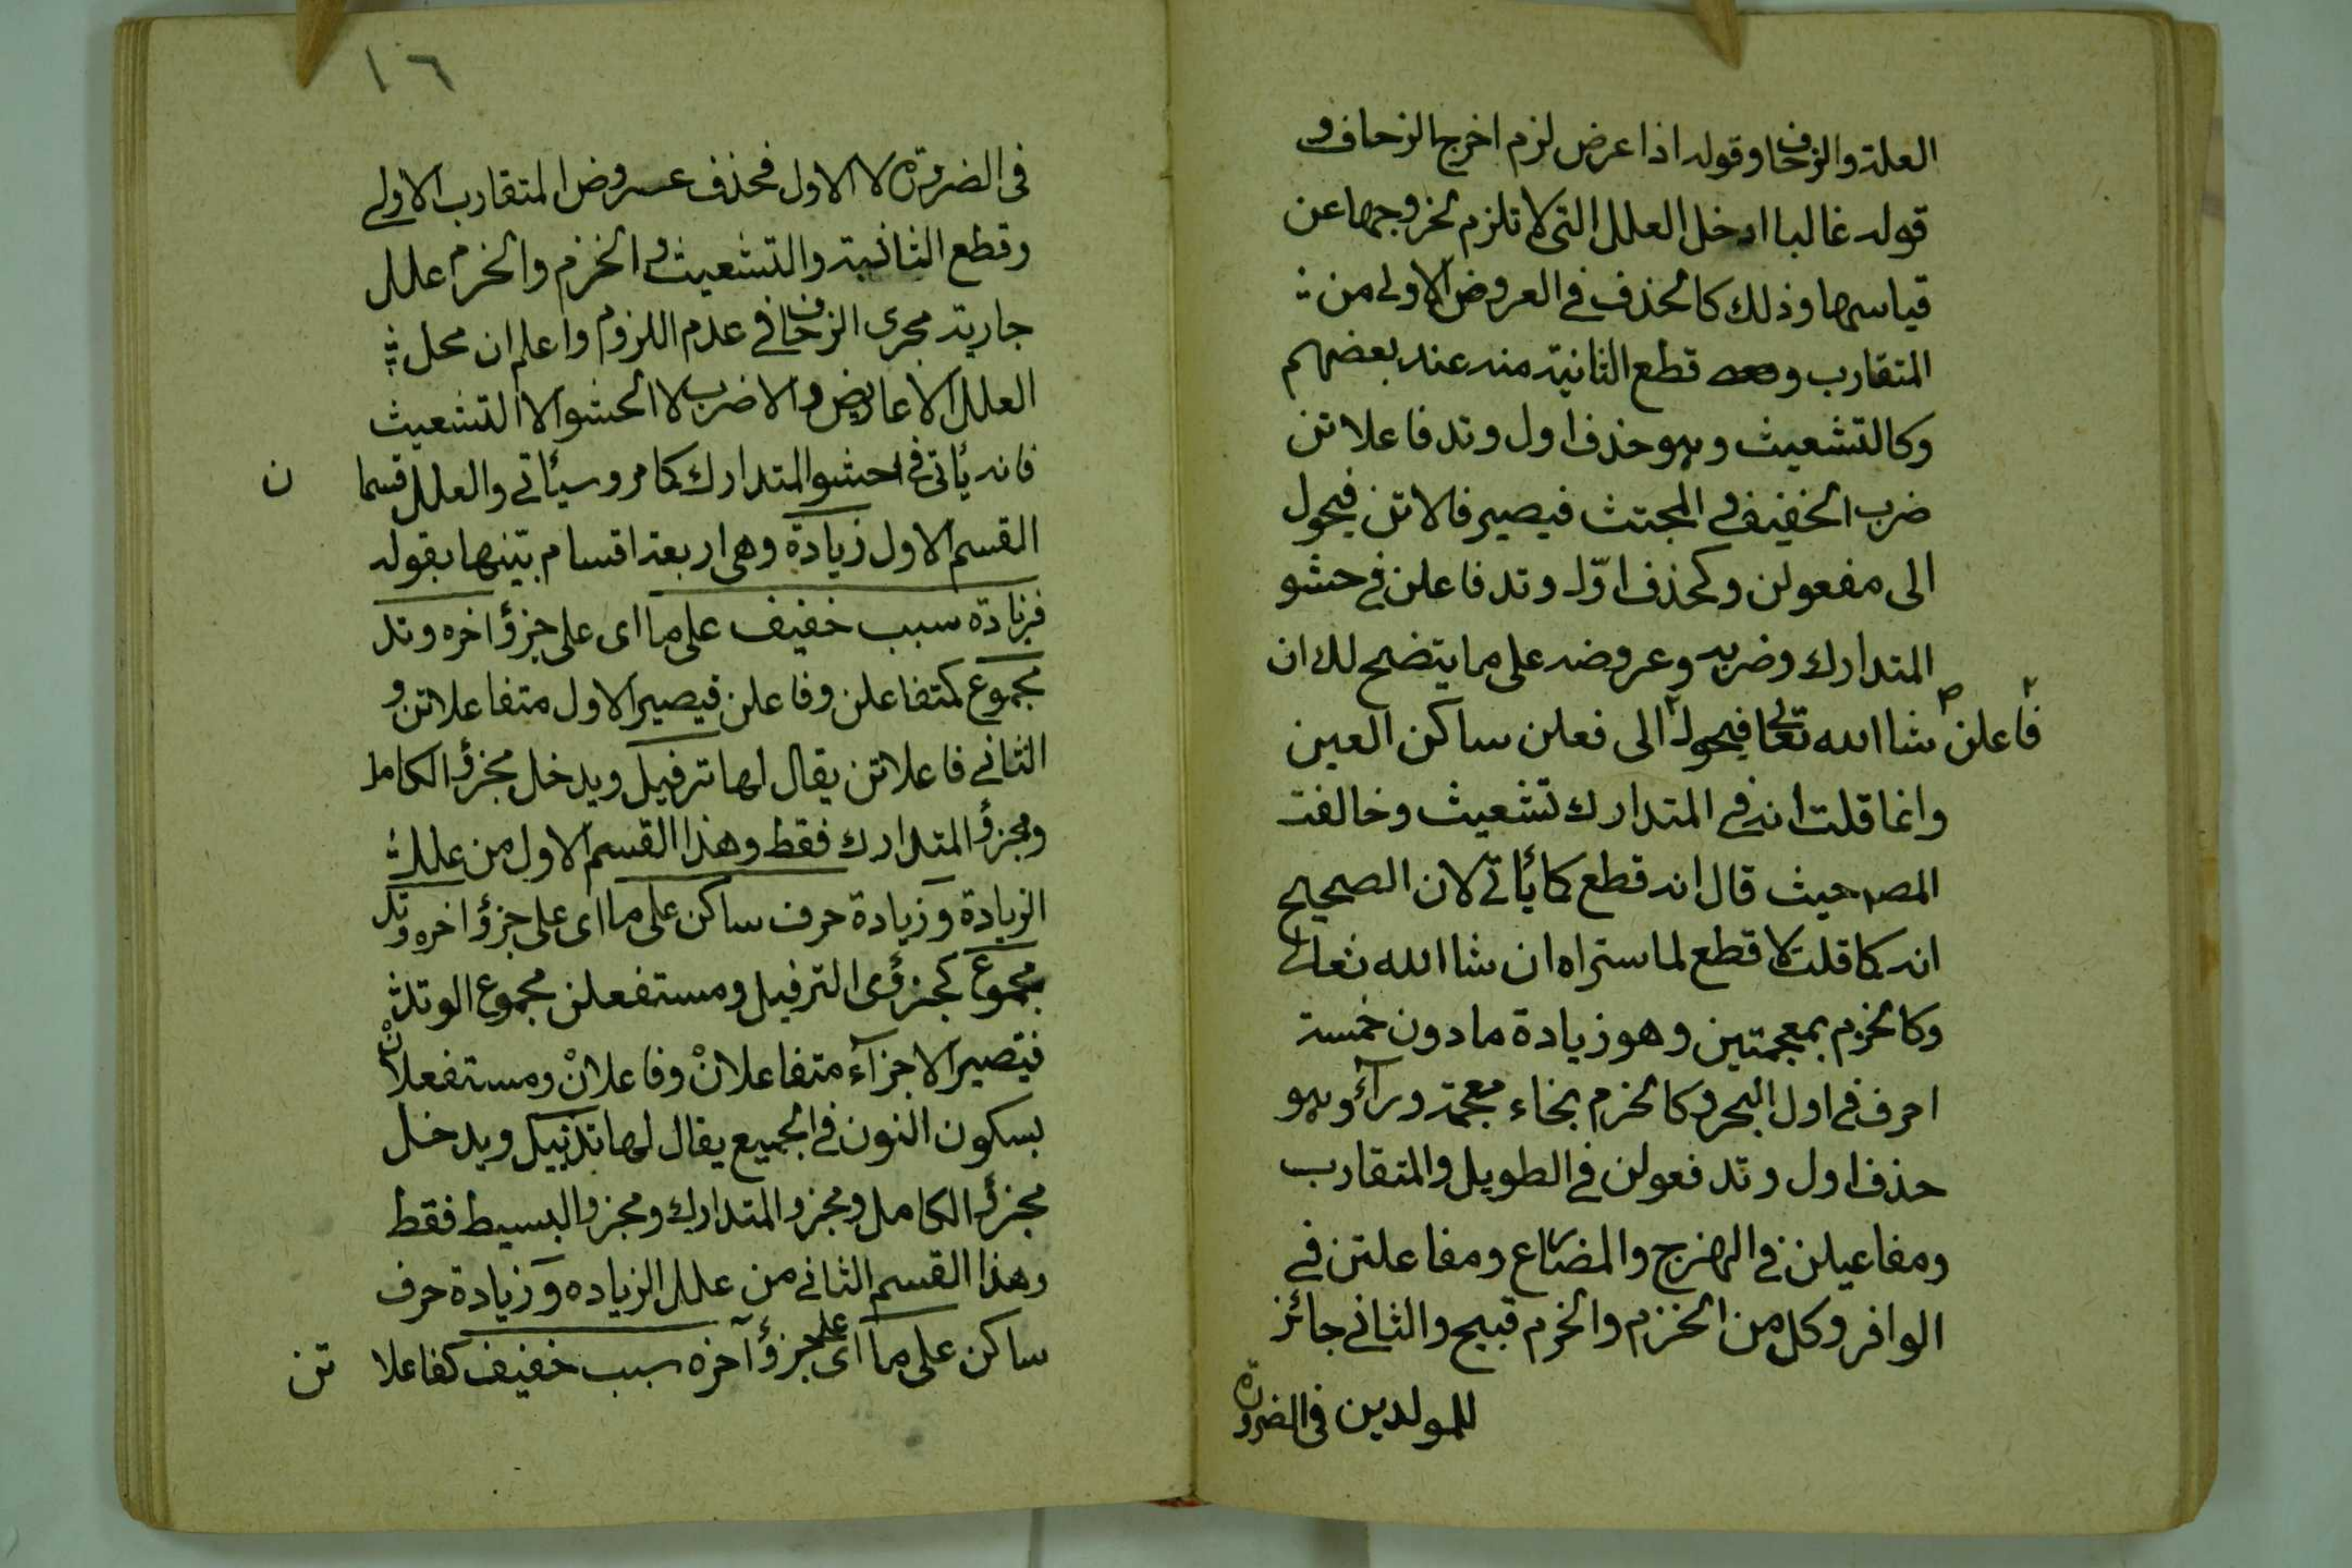 العلة والزحاف وقوله اذا عرض لزم اخرج الزحاف و
قوله غالبا ادخل العلل التى لا تلزم لخروجها عن
قياسها وذلك كالحذف فى العروض الاولى من
المتقارب و قطع الثانية منه عند بعضهم
وكالتشعيث وهو حذف اول وتد فاعلاتن
ضرب الخفيف والمجتث فيصير فالاتن فيحول
الى مفعولن وكحذف اوّل وتد فاعلن فى حشو
المتدارك وضربه وعروضه على ما يتضح لك ان
شا الله تعالى فيحول فاعلن الى فعلن ساكن العين
وانما قلت انه فى المتدارك تشعيث وخالفت
المصـ حيث قال انه قطع كما يأتى لان الصحيح
انه كما قلت لا قطع لما ستراه ان شا الله تعالى
وكالخزم بمعجمتين وهو زيادة ما دون خمسة
احرف فى اول البحر وكالخرم بخاء معجمة ورآء وهو
حذف اول وتد فعولن فى الطويل والمتقارب
ومفاعيلن فى الهزج والمضارع ومفاعلتن فى
الوافر وكل من الخزم والخرم قبيح والثانى جائز
للمولدين فى الضرورة
١٦
فى الضرورة لا الاول فحذف عروض المتقارب الاولى
وقطع الثانية والتشعيث والخزم والخرم علل
جارية مجرى الزحاف فى عدم اللزوم واعلم ان محل
العلل الاعاريض والاضرب لا الحشو الا التشعيث
فانه يأتى فى حشو المتدارك كما مر وسيأتى والعلل قسمان
القسم الاول زيادة وهى اربعة اقسام بينها بقوله
فزيادة سبب خفيف على ما اى على جزؤ اخره وتد
مجموع كمتفاعلن وفاعلن فيصير الاول متفاعلاتن و
الثانى فاعلاتن يقال لها ترفيل ويدخل مجزؤ الكامل
ومجزؤ المتدارك فقط وهذا القسم الاول من علل
الزيادة وزيادة حرف ساكن على ما اى على جزؤ اخره وتد
مجموع كجزؤى الترفيل ومستفعلن مجموع الوتد
فتصير الاجزآء متفاعلانْ وفاعلانْ ومستفعلانْ
بسكون النون فى الجميع يقال لها تذييل ويدخل
مجزؤ الكامل ومجزو المتدارك ومجزو البسيط فقط
وهذا القسم الثانى من علل الزياده وزيادة حرف
ساكن على ما اى على جزؤ آخره سبب خفيف كفاعلاتن